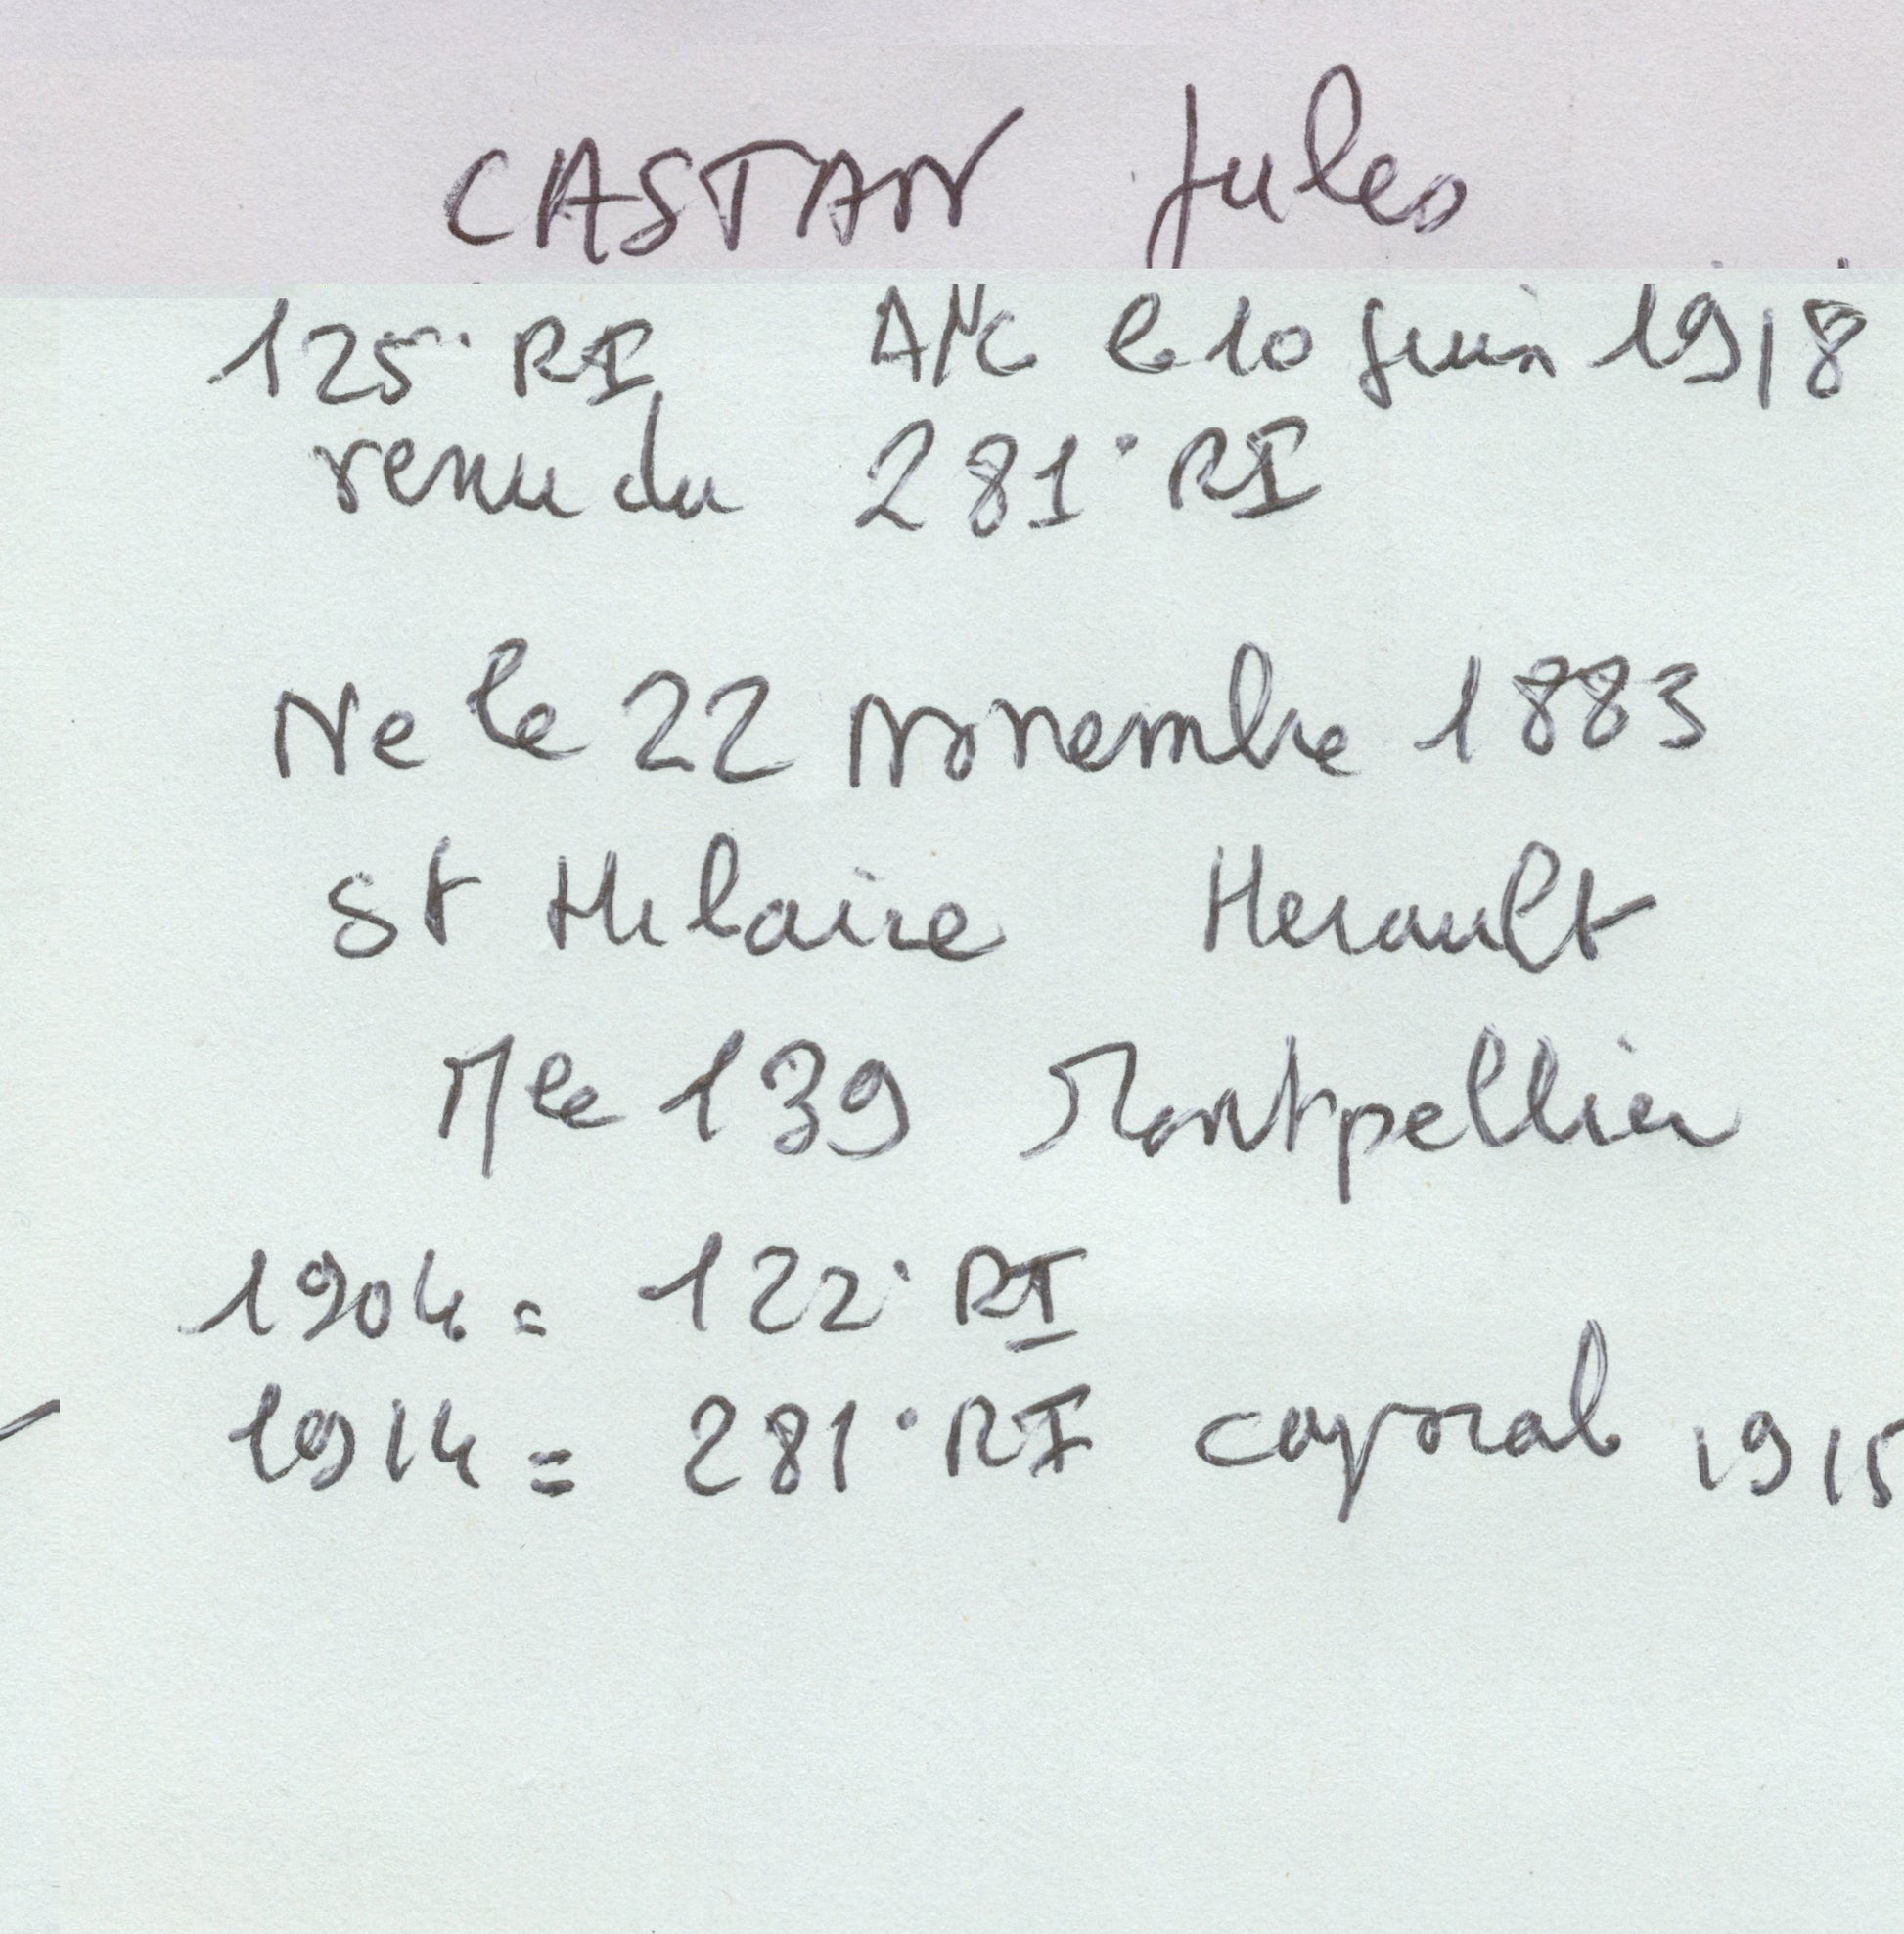 CASTAN Jules
125° RI AMC le 10 juin 1918
venu du 281° RI
Ne le 22 Novembre 1883
St Hilaire Herault
Mle 139 Montpellier
1904 = 122° RI
1914 = 281° RI caporal 1915